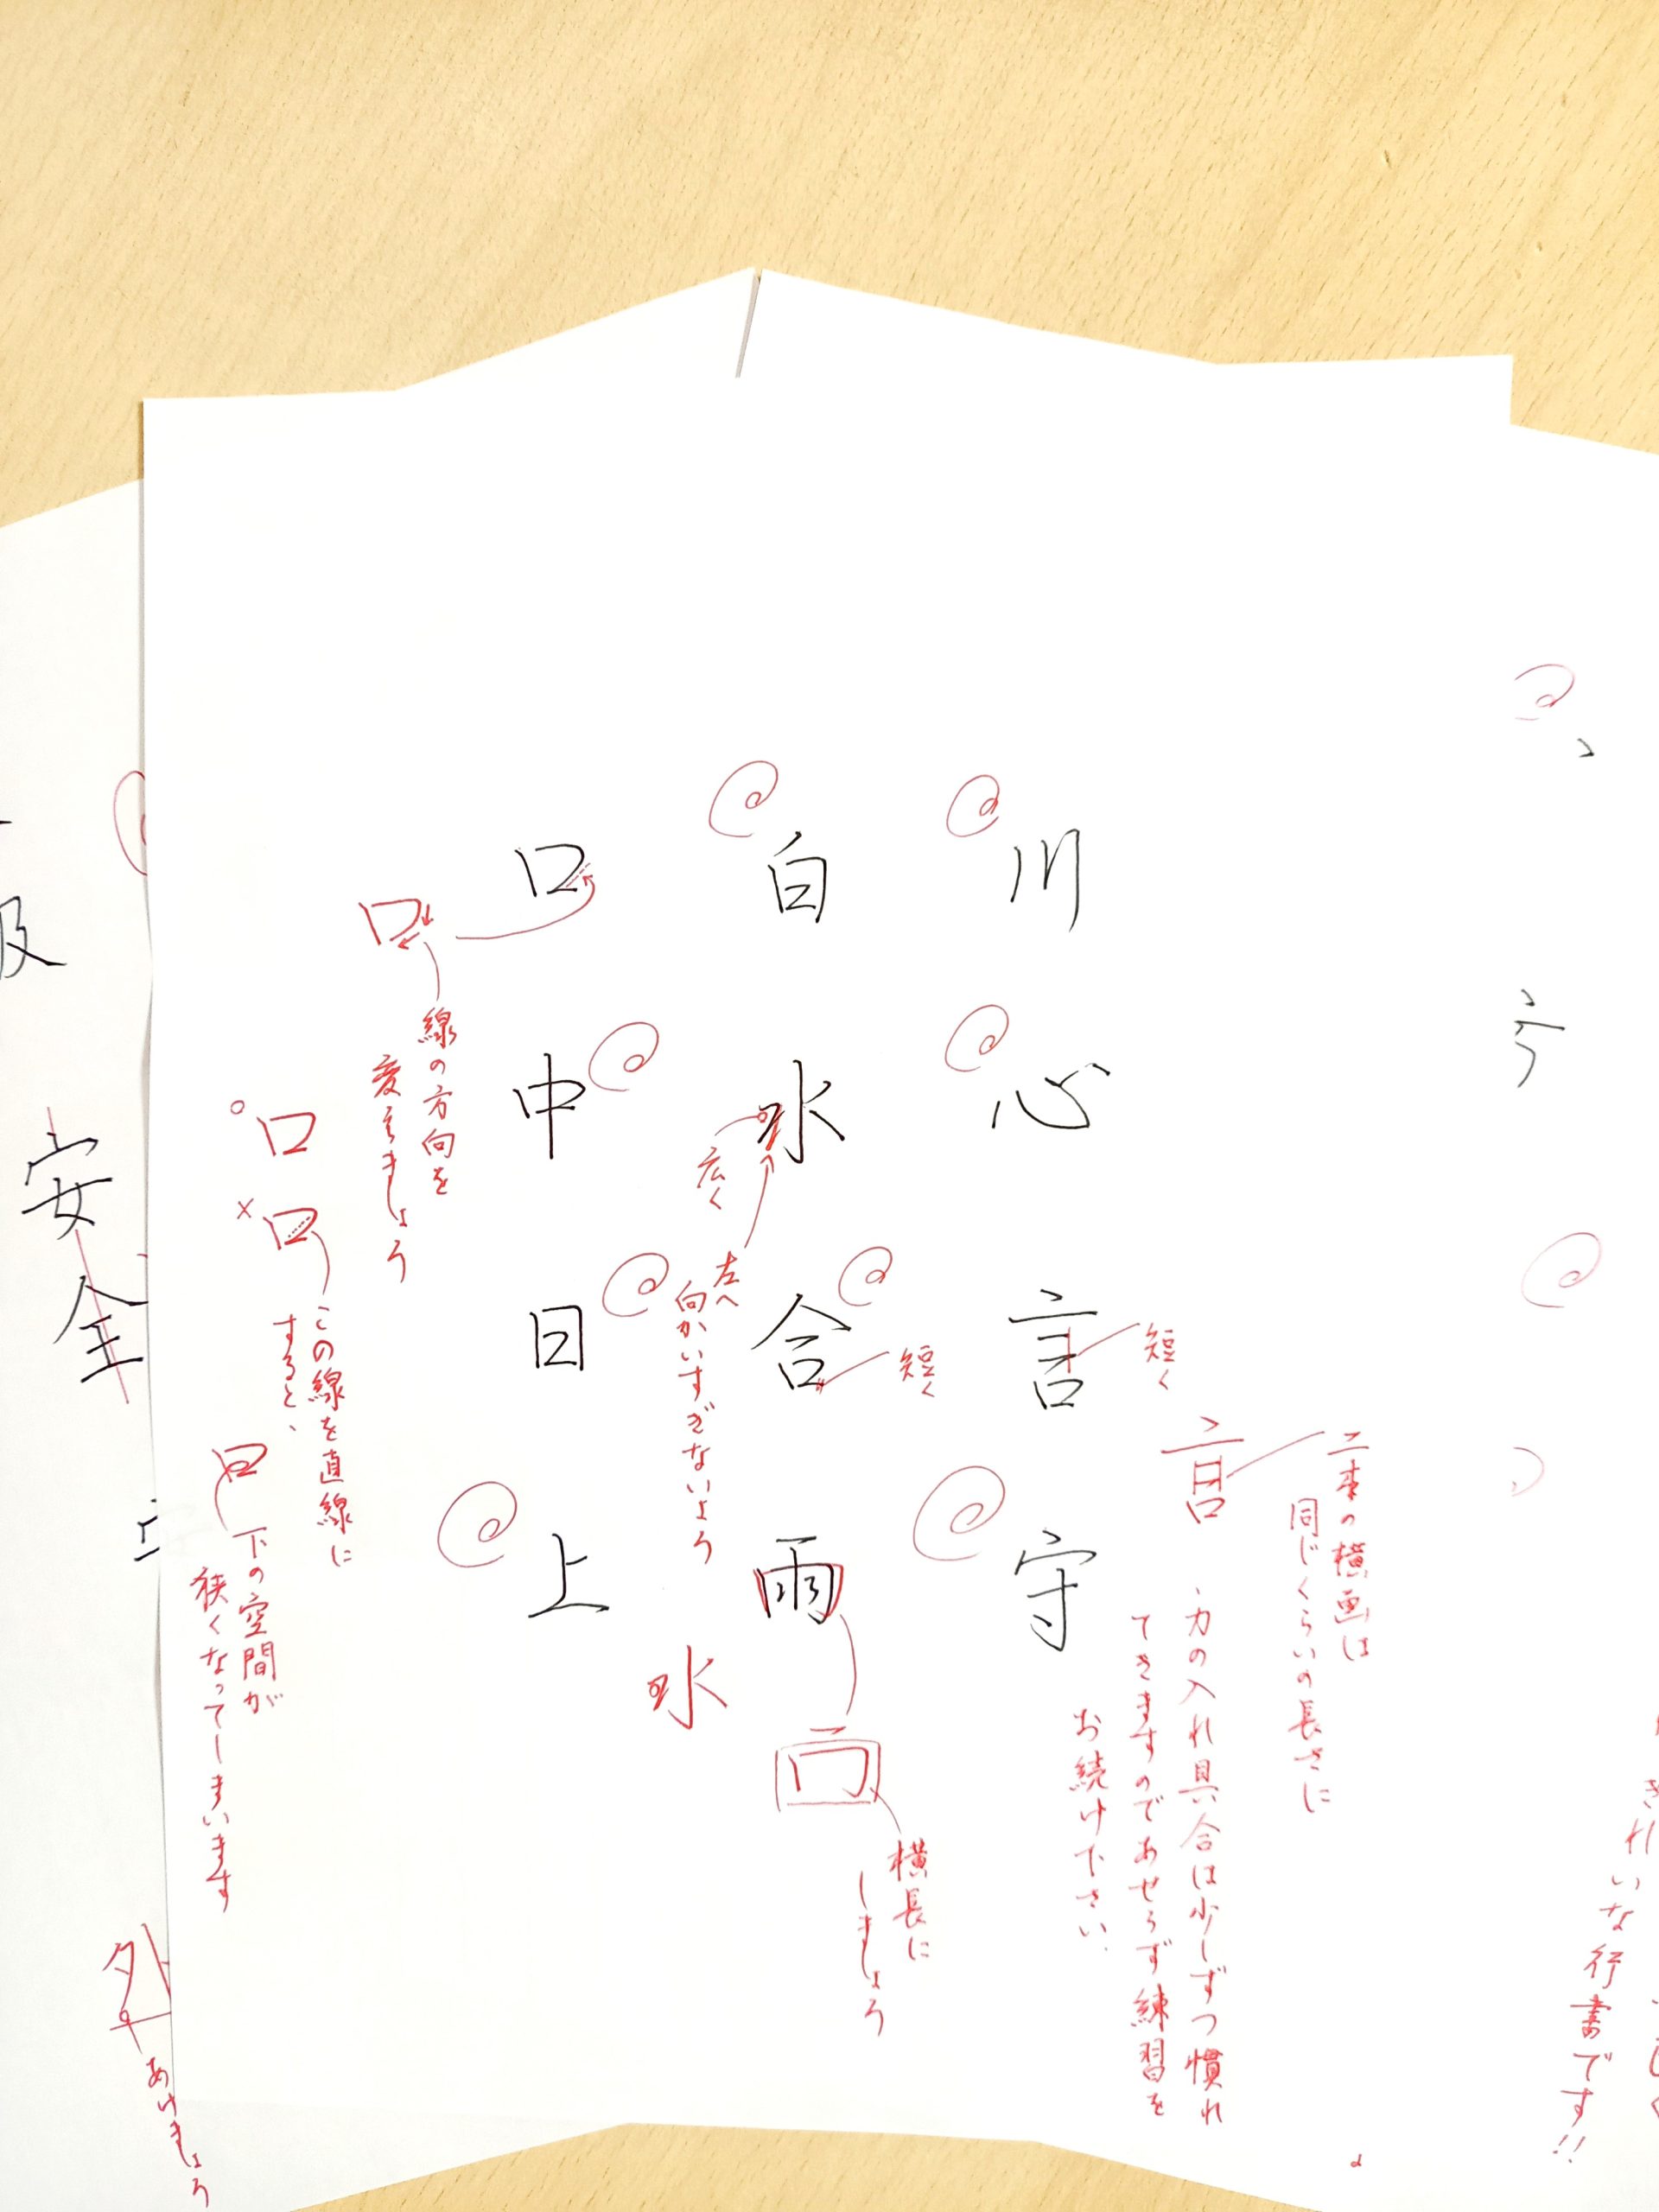 川
心
言
守
白
水
合
雨
口
中
日
上
短く
二本の横画は
同じくらいの長さに
言
・力の入れ具合は少しずつ慣れ
てきますのであせらず練習を
お続け下さい.
短く
広く
左へ
向かいすぎないよう
水
横長に
しましょう
口
線の方向を
変えましょう
○口
×口
この線を直線に
すると、
下の空間が
狭くなってしまいます
きれいな行書です!!
安
全
外
あけましょう